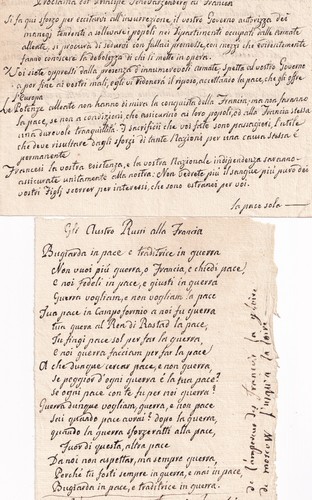 Proclama del Principe Schwarzenberg ai Francesi
Si fa qui sforzo per eccitarvi all'insurrezione, il vostro Governo autorizza dei
maneggi tendenti a sollevare i popoli nei Dipartimenti occupati dalle Armate
alleate, si procura di sedurvi con fallaci promesse, con mezzi che evidentemente
fanno conoscere la debolezza di chi li mette in opera.
Voi siete oppressi dalla presenza d'innumerevoli Armate, spetta al vostro Governo
a por fine ai vostri mali, egli vi ridonerà il riposo, accettando la pace, che gli offre
l'Europa
Le Potenze alleate non hanno di mira la conquista della Francia; ma non faranno
la pace, se non a condizioni, che assicurino ai loro popoli, ed alla Francia stessa
una durevole tranquillità. I sacrificj che voi fate sono passaggieri, l'utile
che deve risultare dagli sforzi di tante Nazioni per una causa stessa è
permanente
Francesi la vostra esistenza, e la vostra Nazionale indipendenza saranno
assicurate unitamente alla nostra. Non vedrete più il sangue più puro dei
vostri figlj scorrer per interessi, che sono estranei per voi.
la pace sola
Gli Austro Russi alla Francia
Bugiarda in pace e traditrice in guerra
Non vuoi più guerra, o Francia, e chiedi pace;
E noi fedeli in pace, e giusti in guerra
Guerra vogliam, e non vogliam la pace
Tua pace in Campoformio a noi fu guerra
tua guerra al Ren di Rastad la pace,
Tu fingi pace sol per far la guerra,
E noi guerra facciam per far la pace!
A che dunque cercar pace, e non guerra
Se peggior d'ogni guerra è la tua pace?
Se ogni pace con te fu per noi guerra?
Guerra dunque vogliam, guerra, e non pace
Sai quando pace avrai? dopo la guerra,
quando la guerra sforzeratti alla pace,
Fuor di questa, altra pace
Da noi non aspettar, ma sempre guerra,
Perchè tu fosti sempre in guerra, e mai in pace,
Bugiarda in pace, e traditrice in guerra.
des Francois la gloire
de moscou jusqu'a la